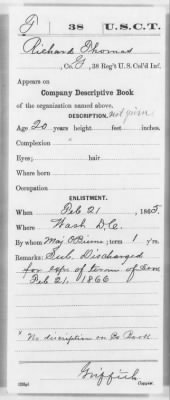 G 38 U.S.C.T.
Richard Thomas
, Co. G, 38 Reg't U.S. Col'd Inf.
Appears on
Company Descriptive Book
of the organization named above.
DESCRIPTION. not given
Age 20 years; height feet inches.
Complexion x
Eyes; hair
Where born
Occupation
ENLISTMENT.
When Feb 21, 1865.
Where Wash D.C.
By whom Maj O'Beirne; term 1 y'rs.
Remarks: Sub. Discharged
for exp of term of
Feb 21, 1866
x No discription on Co Book
Griffith
Copyist.